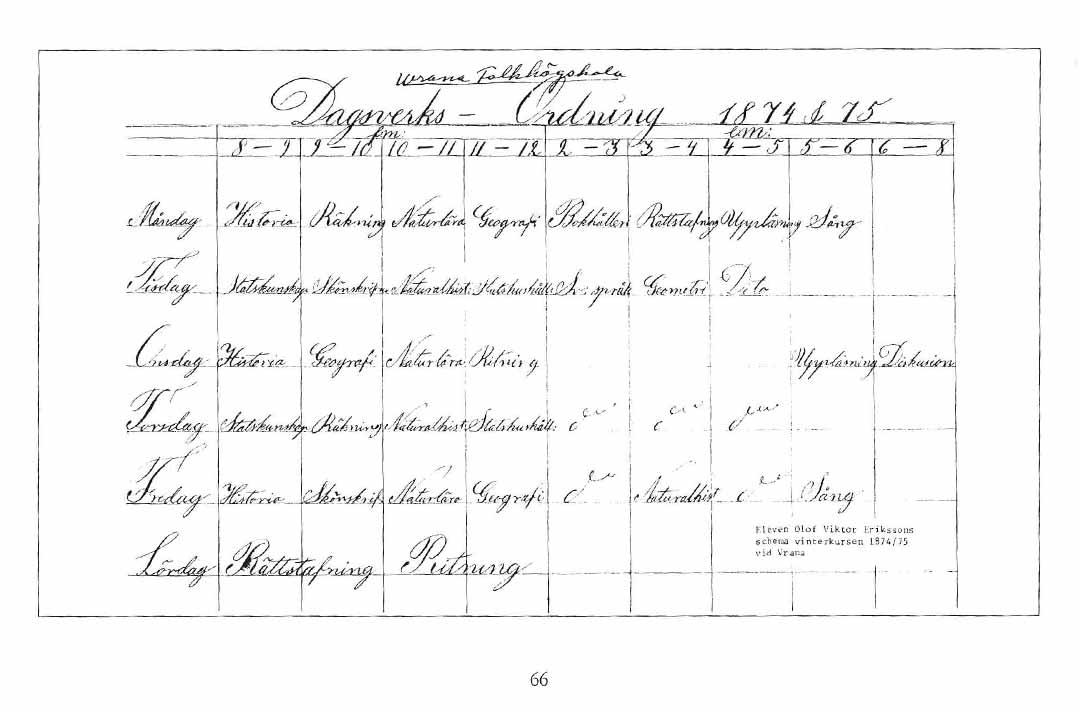 Wrana Folkhögskola
Dagsverks - Ordning 1874 & 75
fm: em:
8 - 9 9 - 10 10 - 11 11 - 12 2 - 3 3 - 4 4 - 5 5 - 6 6 - 8
Måndag Historia Räkning Naturlära Geografi Bokhålleri Rättstafning Uppläsning Sång
Tisdag Statskunskap Skönskrifn Naturalhist: Statshushåll: Sv: språk Geometri Dito
Onsdag Historia Geografi Naturlära Ritning Uppläsning Diskusion
Torsdag Statskunskap Räkning Naturalhist: Statshushåll:
Fredag Historia Skönskrif Naturlära Geografi Naturalhist Sång
Lördag Rättstafning Ritning
Eleven Olof Viktor Erikssons
schema vinterkursen 1874/75
vid Vrana
66